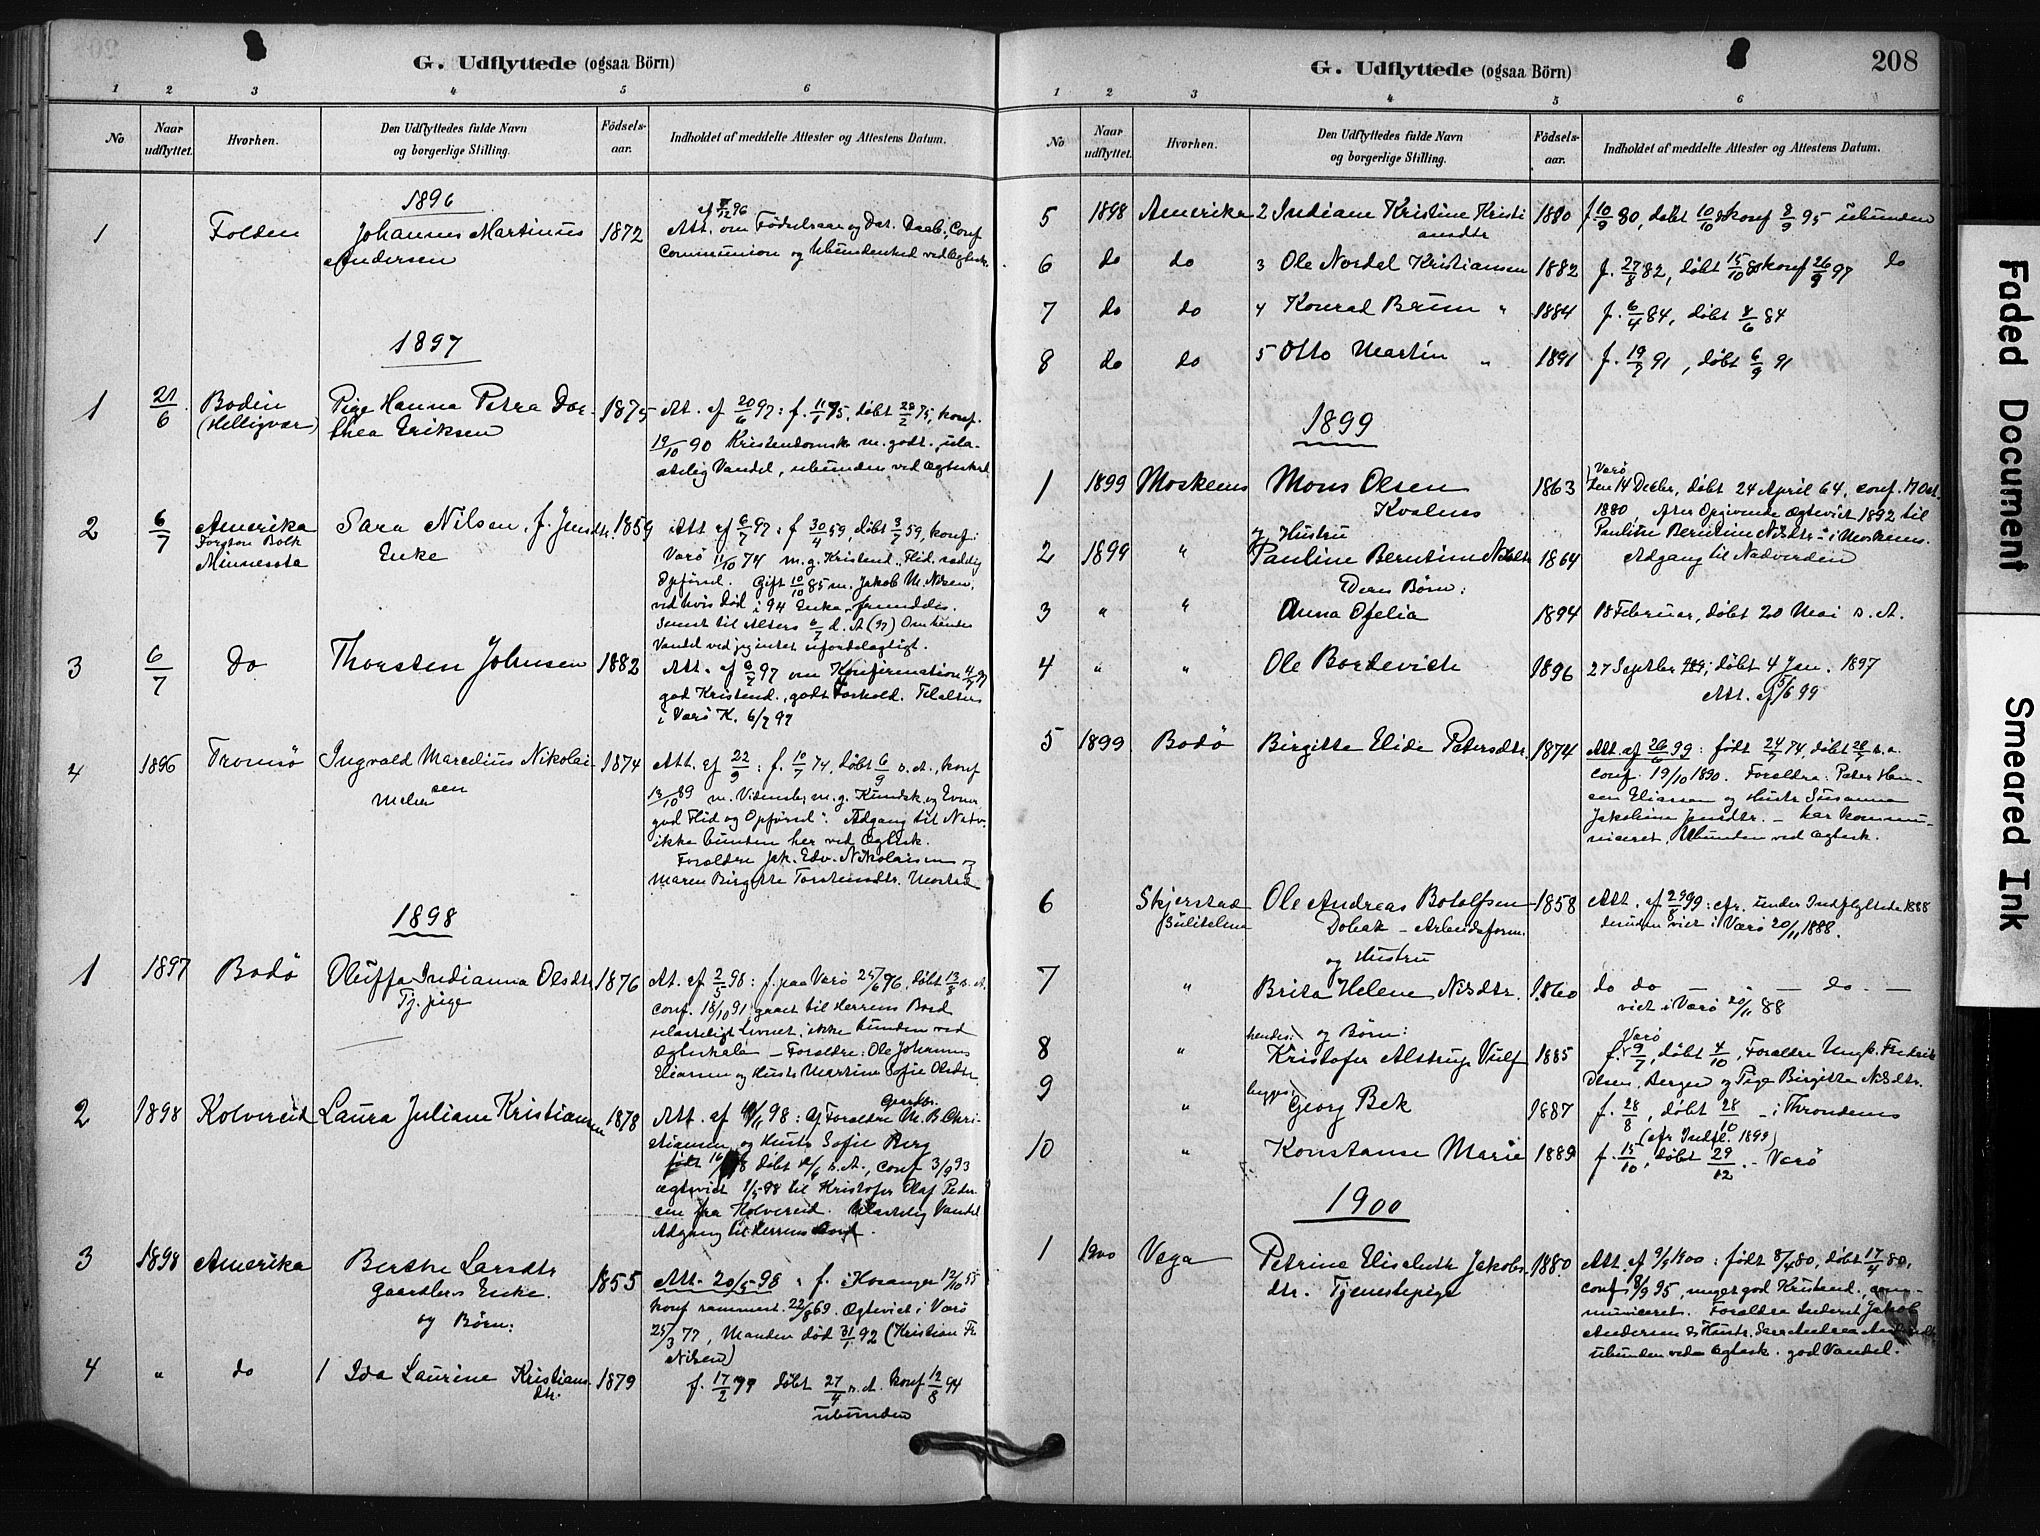 G. Udflyttede (ogsaa Börn)
1 2 3 4 5 6
No
Naar udflyttet.
Hvorhen.
Den Udflyttedes fulde Navn og borgerlige Stilling.
Födsels-aar.
Indholdet af meddelte Attester og Attestens Datum.
1896
1 Folden Johannes Martinus 1872 Att. om Födselsaar og Dat. Daab, Conf
Andersen Communion og Ubundenhed ved Ægtesk.
1897
1 21/6 Bodin Pige Hanna Petra Dor- 1875 At. af 20/6 97: f. 11/1 75, döbt 28/2 75, konf.
(Helligvær) thea Eriksen 19/10 90 Kristendomsk. m. godt, ula-
stelig Vandel, ubunden ved Ægteskab
2 6/7 Amerika Sara Nilsen, f. Jensdtr. 1859 Att af 6/7 97: f 30/4 59, döbt 3/7 59, konf:
Minnesota Enke Værö 11/10 74 m. g. Kristend., Flid, sædelig
Opförsel. Gift 10/10 85 m. Jakob M. Nilsen,
ved hvis död i 94 Enke
Senest til Alters 6/7 d. A (97) Om hendes
Vandel ved jeg intet ufordelagtigt.
3 6/7 do Thorsten Johnsen 1882 Att. af 6/7 97 om Konfirmation 4/7 97
god Kristend., godt Forhold. Tilalters
i Værö K. 6/7 97
4 1896 Tromsö Ingvald Marelius Nikolai- 1874 Att. af 22/9: f. 10/7 74, döbt 6/9 s. A., konf
sen 13/10 89 m. Vidnesb. m. g. Kundsk. og Evner,
god Flid og Opförsel". Adgang til Nadv.
ikke bunden her ved Ægtesk.
Forældre Jak. Edv. Nikolaisen og
Maren Birgitte Torstensdtr. Mostad
1898
1 1897 Bodö Oluffa Indianna Olsdtr 1876 At. af 2/5 98: f. paa Værö 25/6 76, döbt 13/8 s. A.
Tj. pige conf. 18/10 91, gaaet til Herrens Bord
ulasteligt Levnet, ikke bunden ved
Ægteskab – Forældre: Ole Johannes
Eliassen og Hustr Martine Sofie Olsdtr.
2 1898 Kolvereid Laura Juliane Kristiansen 1878 Att. af 98: Af Forældre Gaardbr. M. B. Chri-
stiansen og Hustr Sofie Berg
födt döbt s. A., conf 3/9 93
ægteviet 1/5 98 til Kristofer Olaf Peder
sen fra Kolvereid. Ulastelig Vandel
Adgang til Herrens Bord.
3 1898 Amerika Berthe Larsdtr 1855 Att. 20/5-98. f. i Kosanger 12/10 55
Gaardbr.s Enke. konf sammest. 22/8 69. Ægteviet i Værö
og Börn: 25/3 77, Manden död 31/1 92 (Kristian Fr.
Nilsen)
4 " do 1 Ida Laurine Kristians- 1879 f. 17/2 79 döbt 27/4 s. A. Konf 12/8 94
dtr. ubunden
G. Udflyttede (ogsaa Börn)
208
1 2 3 4 5 6
No
Naar udflyttet.
Hvorhen.
Den Udflyttedes fulde Navn og borgerlige Stilling.
Födsels-aar.
Indholdet af meddelte Attester og Attestens Datum.
5 1898 Amerika 2 Indiane Kristine Kristi 1880 f 10/9 80, döbt 10/10 80 konf 8/9 95 ubunden
ansdtr
6 do do 3 Ole Nordal Kristiansen 1882 f. 27/8 82, döbt 15/10 82 konf 26/9 97 do
7 do do 4 Konrad Brun " 1884 f. 6/4 84, döbt 8/6 84
8 do do 5 Otto Martin " 1891 f. 19/7 91, döbt 6/9 91
1899
1 1899 Moskenes Mons Olsen 1863 Værö den 14 Decbr, döbt 24 April 64, conf. 17 Oct.
Kvalnes 1880 Efter Opgivende Ægteviet 1892 til
Pauline Berntine Nilsdtr – i Moskenes.
og Hustru
2 1899 " Pauline Berntine Nilsdtr 1864 Adgang til Nadverden
Deres Börn:
3 " " Anna Ofelia 1894 18 Februar, döbt 20 Mai s. A.
4 " " Ole Bordevich 1896 27 Septbr döbt 4 Jan. 1897
Att. af 15/6 99
5 1899 Bodö Birgitte Elide Petersdtr 1874 Att. af 26/6 99: födt 24/7 74, döbt 28/7 s. a.
conf. 19/10 1890. Forældre: Peter Han-
sen Eliassen og Hustr Susanna
Jakobine Jensdtr. – har kommu-
niceret, Ubunden ved Ægtesk.
6 Skjerstad Ole Andreas Botolfsen 1858 Att. af 29/8 99: cfr. under Indflyttede 1888
Sulitelma Dobak – Arbeidsform. desuden viet i Værö 20/11 1888.
og Hustru
7 " Brita Helene Nilsdtr. 1860 do do – " – do. –
viet i Værö 20/11 88
hendes og Börn:
8 " Kristofer Alstrup Vulf 1885 f. Værö 9/7, döbt 4/10, Forældre Ungk. Fredrik
Olsen, Bergen og Pige Birgitte Nilsdtr.
9 " begges: Georg Bek 1887 f. 28/8, döbt 28/10 – i Throndenes
(cfr Indfl. 1899)
10 " Konstanse Marie 1889 f. 15/10, döbt 29/12 – Værö
1900
1 1900 Vega Petrine Elisabeth Jakobs 1880 Att. af 9/5 1900: födt 8/4 80, döbt 17/4 80,
dtr. Tjenestepige conf. 8/9 95, meget god Kristend., com-
municeret. Forældre Inderst Jakob
Andersen og Hustr. Sara Andrea
ubunden ved Ægtesk. god Vandel.
Faded Document
Smeared Ink